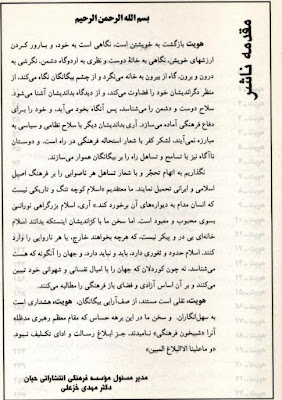 بسم الله الرحمن الرحیم
مقدمه ناشر
هویت بازگشت به خویشتن است، نگاهی است به خود، و بارور کردن
ارزشهای خویش، نگاهی به خانهٔ دوست و نظری به اردوگاه دشمن، نگرشی به
درون و برون، گاه از بیرون به خانه می‌نگرد و از چشم بیگانگان نگاه می‌کند، از
منظر دگراندیشان خود را قضاوت می‌کند، و از دیدگاه بداندیشان آشنا می‌شود.
سلاح دوست و دشمن را می‌شناسد، پس آنگاه بخود می‌آید، و خود را برای
دفاع فرهنگی آماده می‌سازد. آری بداندیشان دیگر با سلاح نظامی و سیاسی به
مبارزه نمی‌آیند، لشکر کفر با شعار استحاله فرهنگی در راه است، و دوستان
ناآگاه نیز با تسامح و تساهل راه را بر بیگانگان هموار می‌سازند.
نگذاریم به اتهام تحجر و با شعار تساهل هر ناصوابی را بر فرهنگ اصیل
اسلامی و ایرانی تحمیل نمایند. ما معتقدیم «اسلام کوچه تنگ و تاریکی نیست
که انسان مدام به دیواره‌های آن برخورد کند.» آری، اسلام بزرگراهی نورانی
بسوی محبوب و معبود است. اما سخن ما با کژاندیشان اینستکه بدانند اسلام
خانه‌ای بی در و پیکر نیست، که هرچه بخواهند خارج، یا هر ناروایی را وارد
کنند. اسلام حدود و ثغوری دارد، باید و نباید دارد، و جهان را آنگونه که هست
می‌شناسد، نه چون کوردلان که جهان را با امیال نفسانی و شهوانی خود تبیین
می‌کنند و بر آن اساس آزادی و فضای باز فرهنگی را مطالبه می‌کنند.
هویت، نقلی است مستند، از صف‌آرایی بیگانگان، هویت، هشداری است
به سهل‌انگاران. و سخن ما در این برهه حساس که مقام معظم رهبری مدظله
آنرا «شبیخون فرهنگی» نامیدند، جز ابلاغ رسالت و ادای تکلیف نبود.
«و ماعلینا الاالبلاغ المبین»
مدیر مسئول مؤسسه فرهنگی انتشاراتی حیان
دکتر مهدی خزعلی